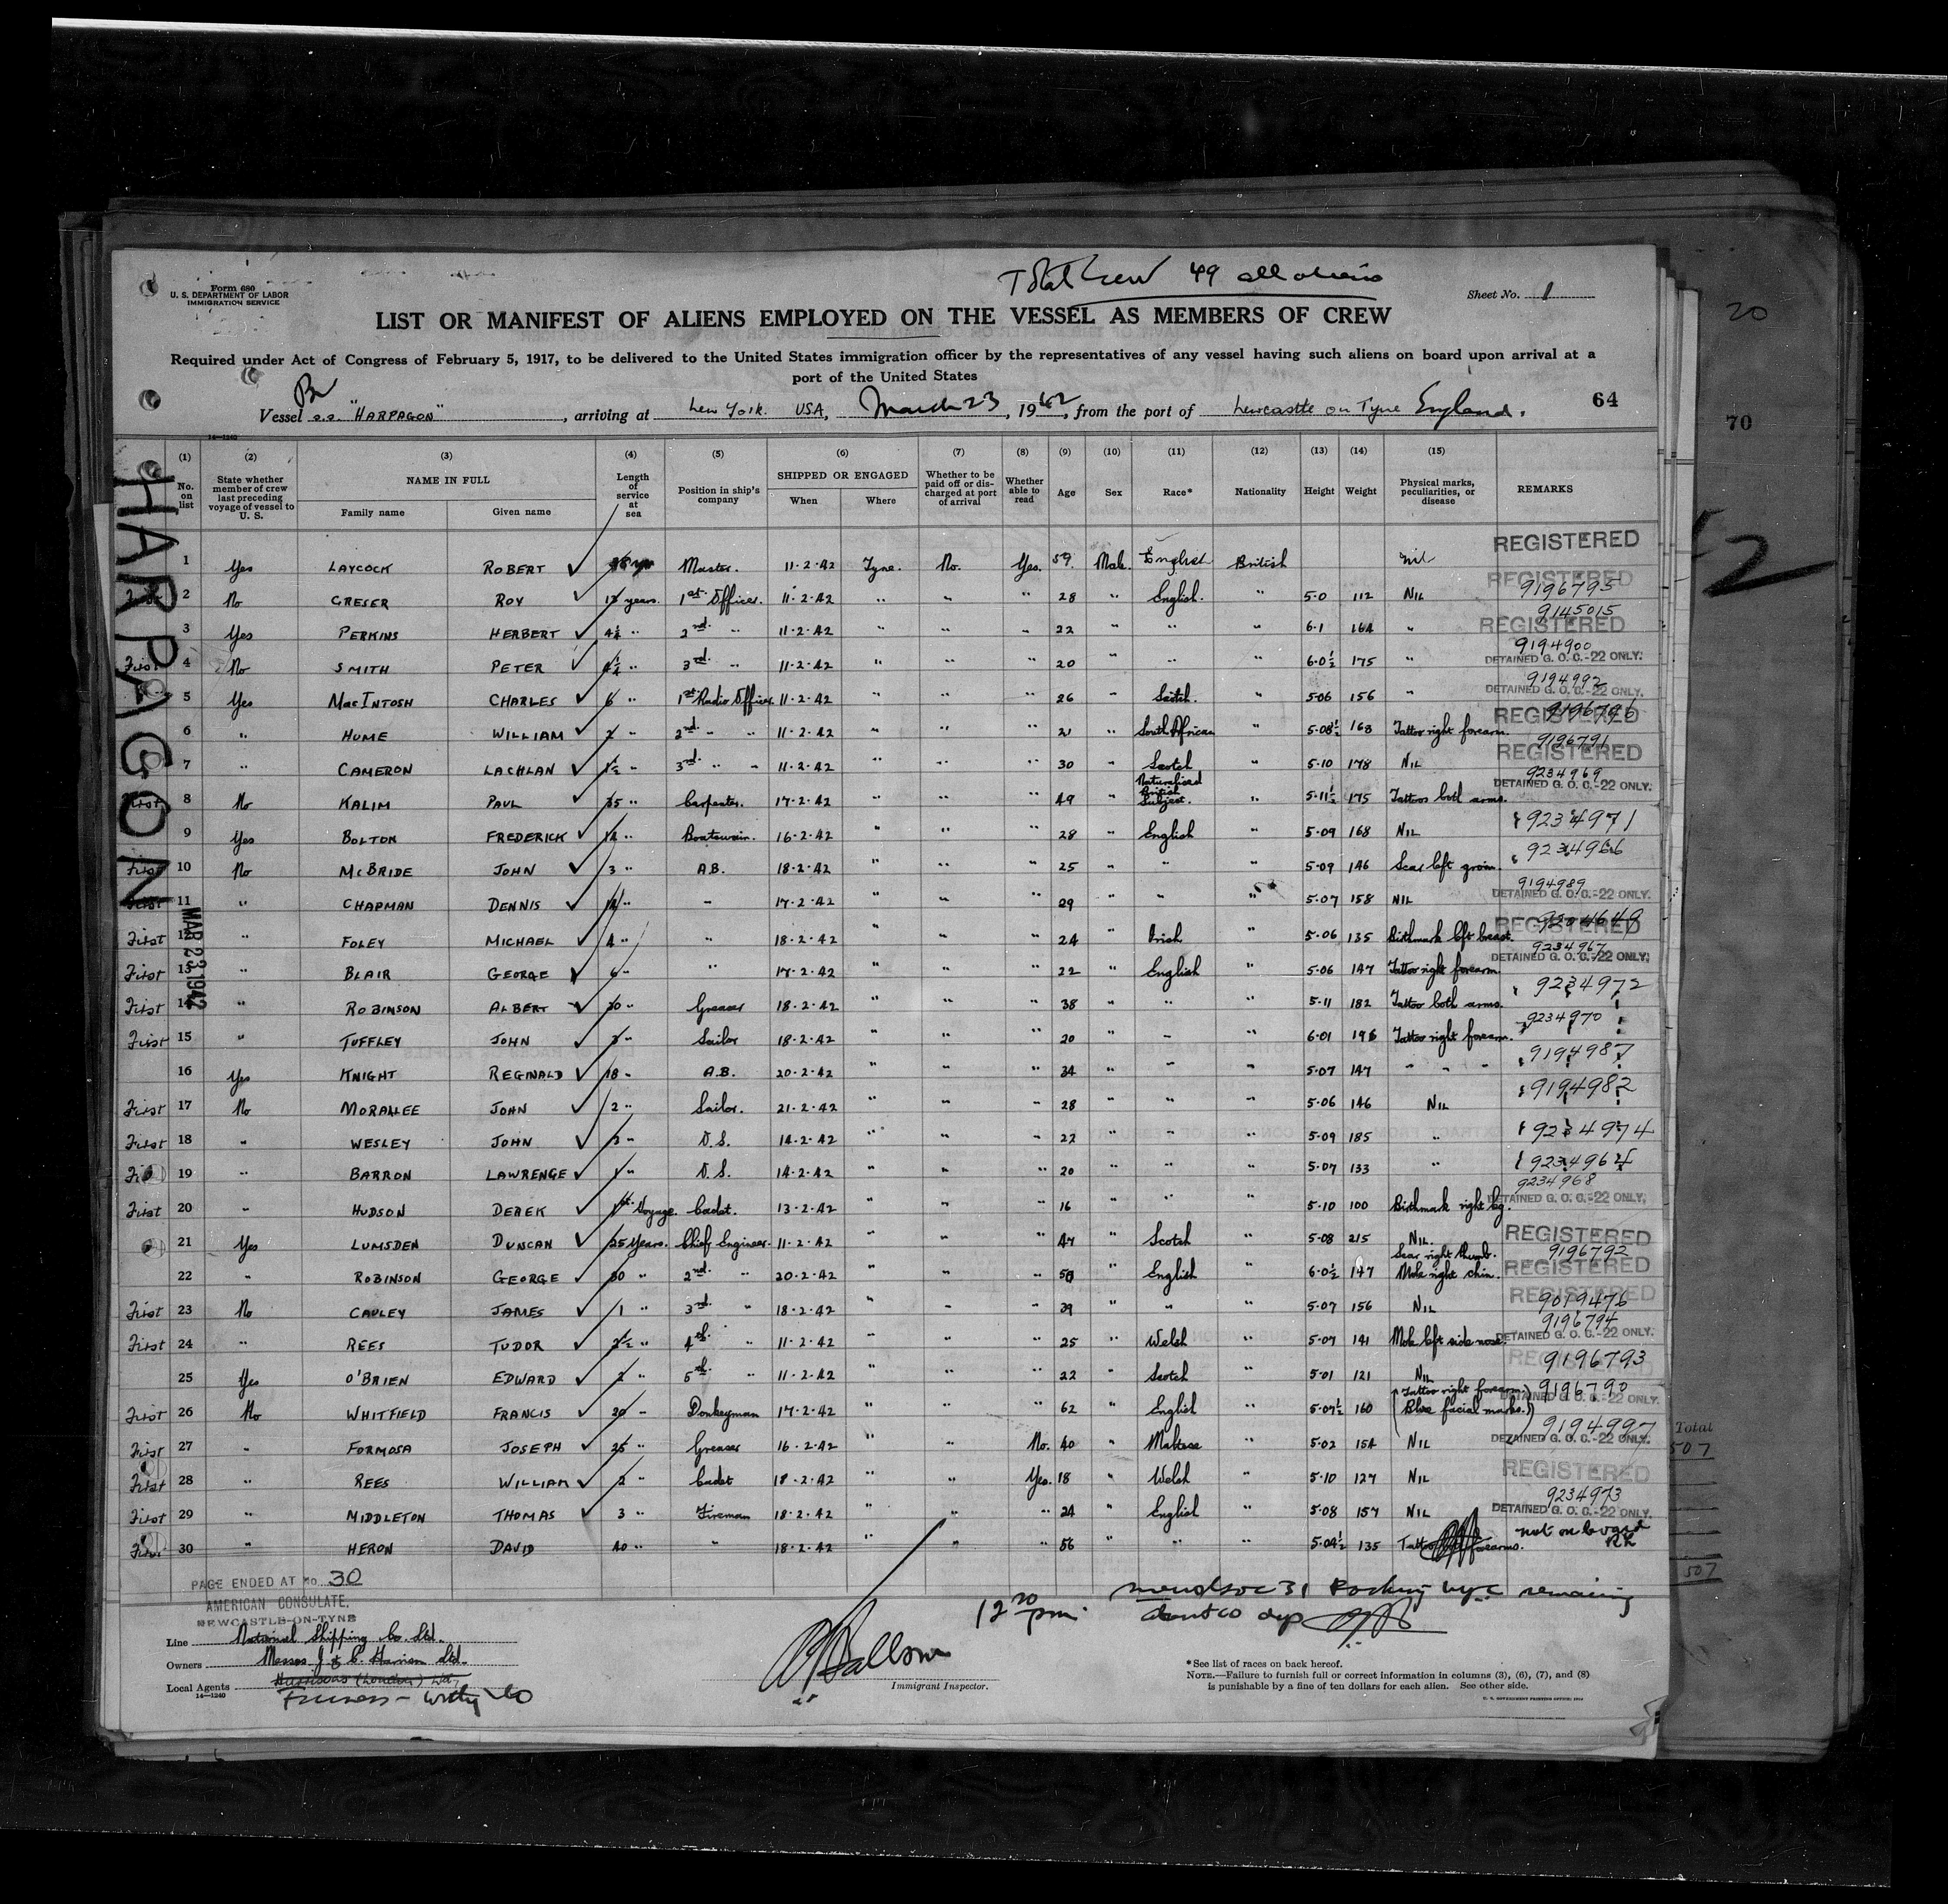 Total Crew 49 all aliens
Form 680
U. S. DEPARTMENT OF LABOR
IMMIGRATION SERVICE
Sheet No. 1
20
LIST OR MANIFEST OF ALIENS EMPLOYED ON THE VESSEL AS MEMBERS OF CREW
Required under Act of Congress of February 5, 1917, to be delivered to the United States immigration officer by the representatives of any vessel having such aliens on board upon arrival at a
port of the United States
Br
Vessel s.s. "HARPAGON", arriving at New York. USA, March 23, 1942, from the port of Newcastle on Tyne England.
64
70
14—1240
HARPAGON
MAR 23 1942
(1) (2) (3) (4) (5) (6) (7) (8) (9) (10) (11) (12) (13) (14) (15)
No. on list
State whether member of crew last preceding voyage of vessel to U. S.
NAME IN FULL
Family name
Given name
Length of service at sea
Position in ship's company
SHIPPED OR ENGAGED
When
Where
Whether to be paid off or discharged at port of arrival
Whether able to read
Age
Sex
Race*
Nationality
Height
Weight
Physical marks, peculiarities, or disease
REMARKS
1 Yes LAYCOCK ROBERT Master. 11-2-42 Tyne. No. Yes. 59 Male English British Nil REGISTERED
2 No GRESER ROY 13 years. 1st Officer. 11-2-42 " " " 28 " English. " 5-0 112 NIL REGISTERED 9196795
3 Yes PERKINS HERBERT 4¼ " 2nd " 11-2-42 " " " 22 " " " 6-1 164 " 9145015 REGISTERED
First 4 No SMITH PETER 3rd " 11-2-42 " " " 20 " " " 6-0½ 175 " 9194900 DETAINED G. O. C.-22 ONLY.
5 Yes MacINTOSH CHARLES 6 " 1st Radio Officer 11-2-42 " " " 26 " Scotch. " 5-06 156 " 9194992 DETAINED G. O. C.-22 ONLY.
6 " HUME WILLIAM 2 " 2nd " " 11-2-42 " " " 21 " South African " 5-08½ 168 Tattoo right forearm. REGISTERED 9196796
7 " CAMERON LACHLAN 1½ " 3rd " " 11-2-42 " " " 30 " Scotch " 5-10 178 NIL 9196791 REGISTERED
First 8 No KALIM PAUL 35 " Carpenter. 17-2-42 " " " 49 " Naturalised British Subject. " 5-11½ 175 Tattoos both arms. 9234969 DETAINED G. O. C.-22 ONLY.
9 Yes BOLTON FREDERICK 12 " Boatswain. 16-2-42 " " " 28 " English " 5-09 168 NIL 9234971
First 10 No McBRIDE JOHN 3 " A.B. 18-2-42 " " " 25 " " " 5-09 146 Scar left groin. 9234966
First 11 " CHAPMAN DENNIS " " 17-2-42 " " " 29 " " " 5-07 158 NIL 9194989 DETAINED G. O. C.-22 ONLY.
First 12 " FOLEY MICHAEL 4 " " 18-2-42 " " " 24 " Irish " 5-06 135 Birthmark left breast. REGISTERED
First 13 " BLAIR GEORGE 6 " " 17-2-42 " " " 22 " English " 5-06 147 Tattoo right forearm 9234967 DETAINED G. O. C.-22 ONLY.
First 14 " ROBINSON ALBERT 20 " Greaser 18-2-42 " " " 38 " " " 5-11 182 Tattoo both arms. 9234972
First 15 " TUFFLEY JOHN 3 " Sailor 18-2-42 " " " 20 " " " 6-01 196 Tattoo right forearm. 9234970
16 Yes KNIGHT REGINALD 18 " A.B. 20-2-42 " " " 34 " " " 5-07 147 " " " 9194987
First 17 No MORALLEE JOHN 2 " Sailor. 21-2-42 " " " 28 " " " 5-06 146 NIL 9194982
First 18 " WESLEY JOHN 2 " O.S. 14-2-42 " " " 22 " " " 5-09 185 " 9234974
First 19 " BARRON LAWRENCE 1 " O.S. 14-2-42 " " " 20 " " " 5-07 133 " 9234964
First 20 " HUDSON DEREK 1st Voyage. Cadet. 13-2-42 " " " 16 " " " 5-10 100 Birthmark right leg. 9234968 DETAINED G. O. C.-22 ONLY.
21 Yes LUMSDEN DUNCAN 25 Years. Chief Engineer. 11-2-42 " " " 47 " Scotch " 5-08 215 NIL. REGISTERED
22 " ROBINSON GEORGE 30 " 2nd " 20-2-42 " " " 50 " English " 6-0½ 147 Scar right thumb. Mole right chin. 9196792 REGISTERED
First 23 No CAULEY JAMES 1 " 3rd " 18-2-42 " " " 39 " " " 5-07 156 NIL REGISTERED 9019476
First 24 " REES TUDOR 2½ " 4th " 11-2-42 " " " 25 " Welsh " 5-07 141 Mole left side nose. 9196794 DETAINED G. O. C.-22 ONLY.
25 Yes O'BRIEN EDWARD 2 " 5th " 11-2-42 " " " 22 " Scotch " 5-01 121 NIL 9196793
First 26 No WHITFIELD FRANCIS 20 " Donkeyman 17-2-42 " " " 62 " English " 5-07½ 160 (Tattoo right forearm.) (Blue facial marks.) 9196790 DETAINED G. O. C.-22 ONLY.
First 27 " FORMOSA JOSEPH 25 " Greaser 16-2-42 " " No. 40 " Maltese " 5-02 154 NIL 9194997 DETAINED G. O. C.-22 ONLY.
First 28 " REES WILLIAM 2 " Cadet 18-2-42 " " Yes. 18 " Welsh " 5-10 127 NIL REGISTERED
First 29 " MIDDLETON THOMAS 3 " Fireman 18-2-42 " " " 24 " English " 5-08 157 NIL 9234973 DETAINED G. O. C.-22 ONLY.
First 30 " HERON DAVID 40 " " 18-2-42 " " " 56 " " " 5-04½ 135 Tattoo forearms. not on board
Total
507
507
PAGE ENDED AT No. 30
AMERICAN CONSULATE.
NEWCASTLE-ON-TYNE
12 20 pm. remaining
about 10 days
Line National Shipping Co. Ltd.
Owners Messrs J. & C. Harrison Ltd.
Local Agents Harrisons (London) Ltd.
Furness-Withy Co
14—1240
Immigrant Inspector.
*See list of races on back hereof.
NOTE.—Failure to furnish full or correct information in columns (3), (6), (7), and (8)
is punishable by a fine of ten dollars for each alien. See other side.